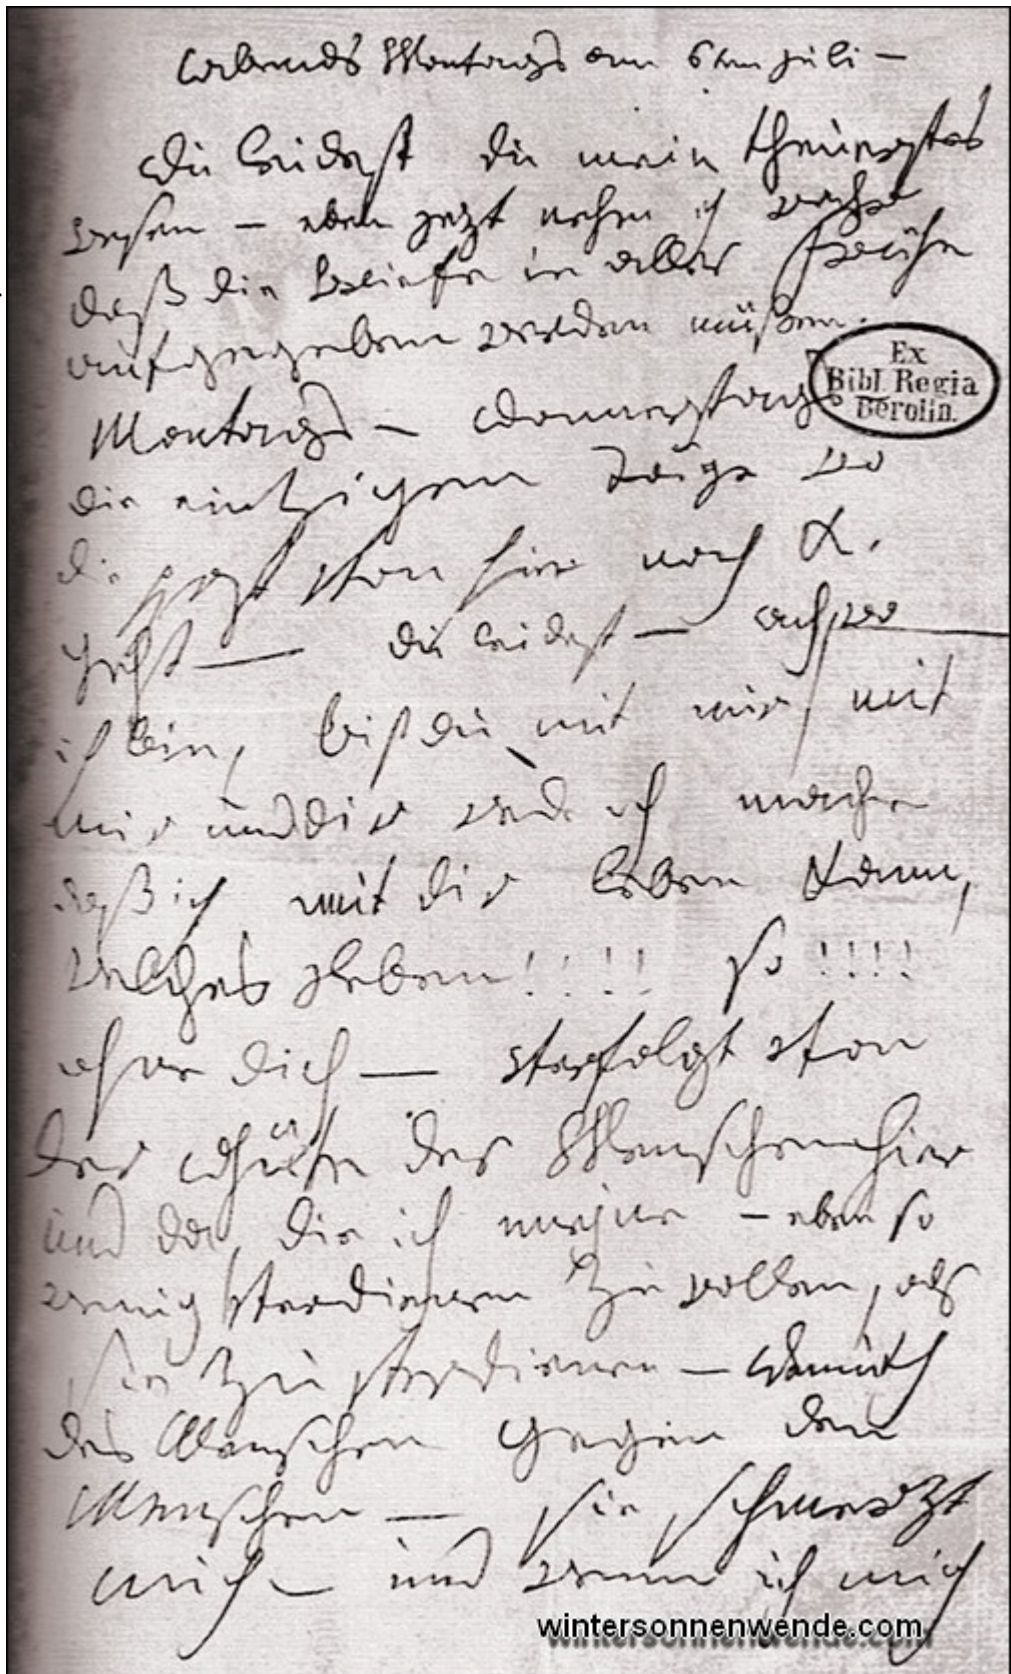 Abends Montags am 6ten juli –
Du leidest du mein theuerstes
wesen – eben jezt nehme ich wahr
daß die Briefe in aller Frühe
aufgegeben werden müßen.
Ex
Bibl. Regia
Berolin.
Montags – Donnerstags
die eintzigen Täge wo
die post von hier nach K.
geht — du leidest — ach, wo
ich bin, bist du mit mir, mit
mir und dir rede ich mache
daß ich mit dir leben kann,
welches Leben!!!! so!!!!
ohne dich — Verfolgt von
der Güte der Menschen hier
und da, die ich meine – eben so
wenig verdienen zu wollen, als
sie zu verdienen — Demuth
des Menschen gegen den
Menschen — sie schmerzt
mich — und wenn ich mich
wintersonnenwende.com